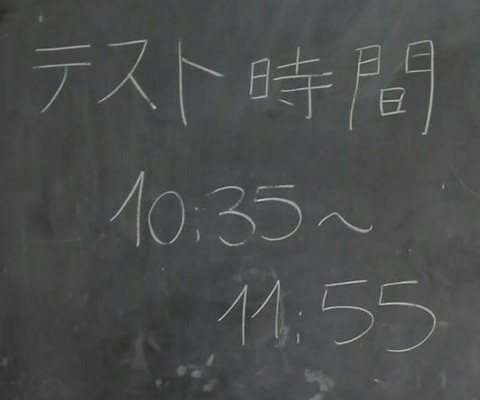 テスト時間
10:35～
11:55